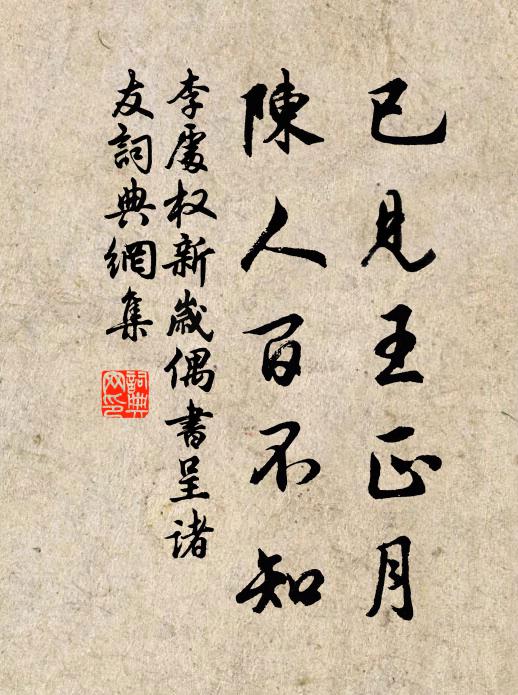 已見王正月
陳人百不知
李處权新歲偶書呈诸
友詞典網集
詞典网印